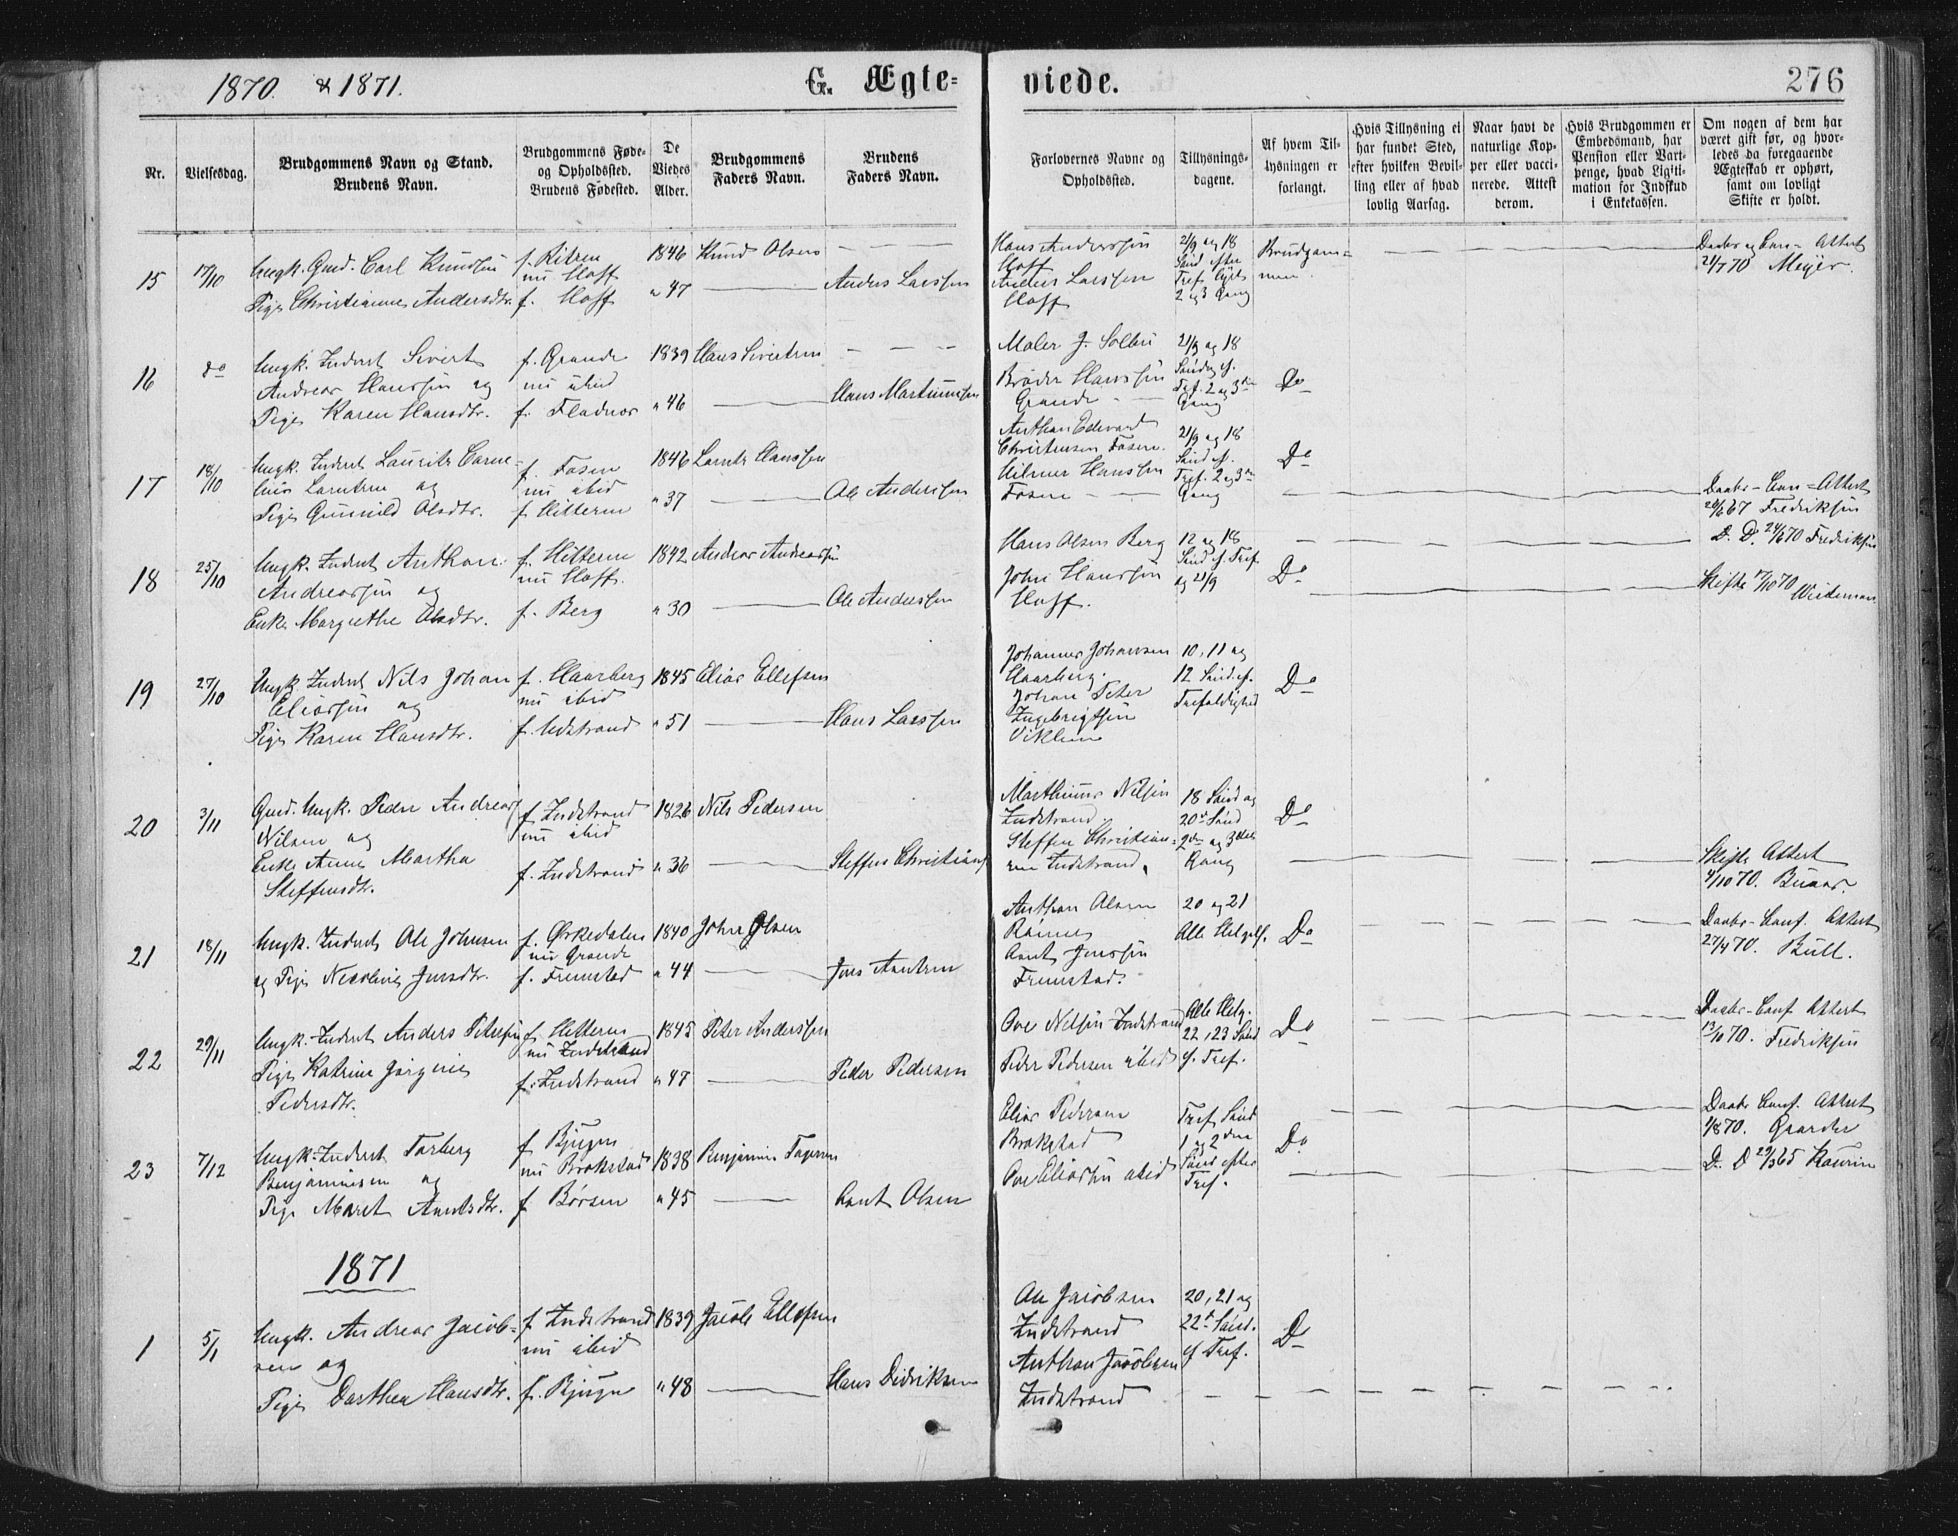 1870. & 1871.
G. Ægte=
viede.
276
Nr.
Vielsesdag.
Brudgommens Navn og Stand.
Brudens Navn.
Brudgommens Føde=
og Opholdssted.
Brudens Fødested.
De
Viedes
Alder.
Brudgommens
Faders Navn.
Brudens
Faders Navn.
Forlovernes Navne og
Opholdssted.
Tillysnings-
dagene.
Af hvem Til-
lysningen er
forlangt.
Hvis Tillysning ei
har fundet Sted,
efter hvilken Bevil-
ling eller af hvad
lovlig Aarsag.
Naar havt de
naturlige Kop-
per eller vacci-
nerede. Attest
derom.
Hvis Brudgommen er
Embedsmand, har
Pension eller Vart-
penge, hvad Ligiti-
mation for Indskud
i Enkekassen.
Om nogen af dem har
været gift før, og hvor-
ledes da foregaaende
Ægteskab er ophørt,
samt om lovligt
Skifte er holdt.
15 17/10
Ungk. Gmd. Carl Knudsen
Pige Christianne Andersdtr.
nu Hoff
f. Hoff
1846
" 47
Knud Olsen
Anders Larssen
Hans Anderssen
Hoff
Anders Larssen
Hoff
21/9 og 18
Sönd efter
Tref.
2 og 3 Gang
Brudgom=
men.
Daabs og Con- Attest
21/7 70 Meyer.
16 do
Ungk. Inderst Sivert
Andreas Hanssen og
Pige Karen Hansdtr.
f. Grande
nu ibid
f. Fladnes
1839
" 46
Hans Sivertsen
Hans Martinussen
Maler J. Solbu
Broder Hanssen
Grande
21/9 og 18
Sönd. ef.
Tref. 2 og 3de
Gang
Do
17 18/10
Ungk. Inderst Laurits Corne-
lius Larntsen og
Pige Gunnild Olsdtr.
f. Fosen
nu ibid
f Hitteren
1846
" 37
Larnts Hanssen
Ole Anderssen
Anthon Edevard
Christensen Fosen.
Hilmer Hanssen
Fosen
21/9 og 18
Sönd ef.
Tref. 2 og 3de
Gang
Do
Daabs- Con- Attest
26/6 67 Fredriksen
D. D. 24/6 70 Fredriksen
18 25/10
Ungk. Inderst Anthon
Andreassen og
Enke Margrethe Olsdtr.
f. Hitteren
nu Hoff.
f. Berg
1842
" 30
Andreas Andreassen
Ole Anderssen
Hans Olsen Berg
John Hanssen
Hoff.
12 og 18
Sönd ef. Tref
og 21/9
Do
Skifte 17/10 70
Wideman
19 27/10
Ungk. Inderst Nils Johan
Eliassen og
Pige Karen Hansdtr.
f. Haarberg
nu ibid
f. Udstrand
1845
" 51
Elias Ellefsen
Hans Larssen
Johannes Johansen
Haarberg.
Johan Peter
Ingebrigtsen
Viklem
10, 11 og
12 Sönd. ef.
Trefoldighed
Do
20 3/11
Gmd. Ungk. Peder Andreas
Nilsen og
Enke Anne Martha
Steffensdtr.
f. Indstrand
nu ibid
f. Indstrand
1826
" 36
Nils Pedersen
Steffen Christians
Marthinus Nilsen
Indstrand.
Steffen Christian=
sen Indstrand.
18 Sönd og
20de Sönd
2den og 3die
Gang
Do
Skifte Attest
4/10 70. Buaas.
21 18/11
Ungk. Inderst Ole Johnsen
og Pige Nicoline Jensdtr.
f. Ørkedalen
nu Grande
f. Fremstad
1840
" 44
John Olsen
Jens Arntsen
Anthon Olsen
Rönne
Arnt Jenssen
Fremstad.
20 og 21
Alle Helgelf.
Do
Daabs- Conf. Attest
27/4 70. Bull.
22 29/11
Ungk. Inderst Anders Petersen
Pige Katrine Jörgine
Pedersdtr.
f. Hitteren
nu Indstrand
f. Indstrand
1845
" 47
Peter Anderssen
Peder Pedersen
Ove Nilsen Indstrand
Peder Pedersen ibid
Alle Helg.
22, 23 Sönd
ef. Tref.
Do
Daabs- Conf Attest
13/10 70. Fredriksen
23 7/12
Ungk. Inderst Torberg
Benjaminsen og
Pige Maret Arntsdtr.
f Bjugn
nu Brekstad
f Börsen
1838
" 45
Arnt Olsen
Elias Pedersen
Brekstad
Ove Eliassen ibid
Tref Sönd
1 og 2den
Sönd efter
Tref.
Do
Daabs Conf. Attest
70. Gaarder
D. D 29/3 65 Kaurin
1871
1 5/1
Ungk. Andreas Jacob-
sen og
Pige Dorthea Hansdtr.
f. Indstrand
nu ibid
f. Bjugn
1839
" 48
Jacob Ellefsen
Hans Didriksen
Ole Jacobsen
Indstrand
Anthon Jacobsen
Indstrand
20, 21 og
22de Sönd.
ef Tref.
Do